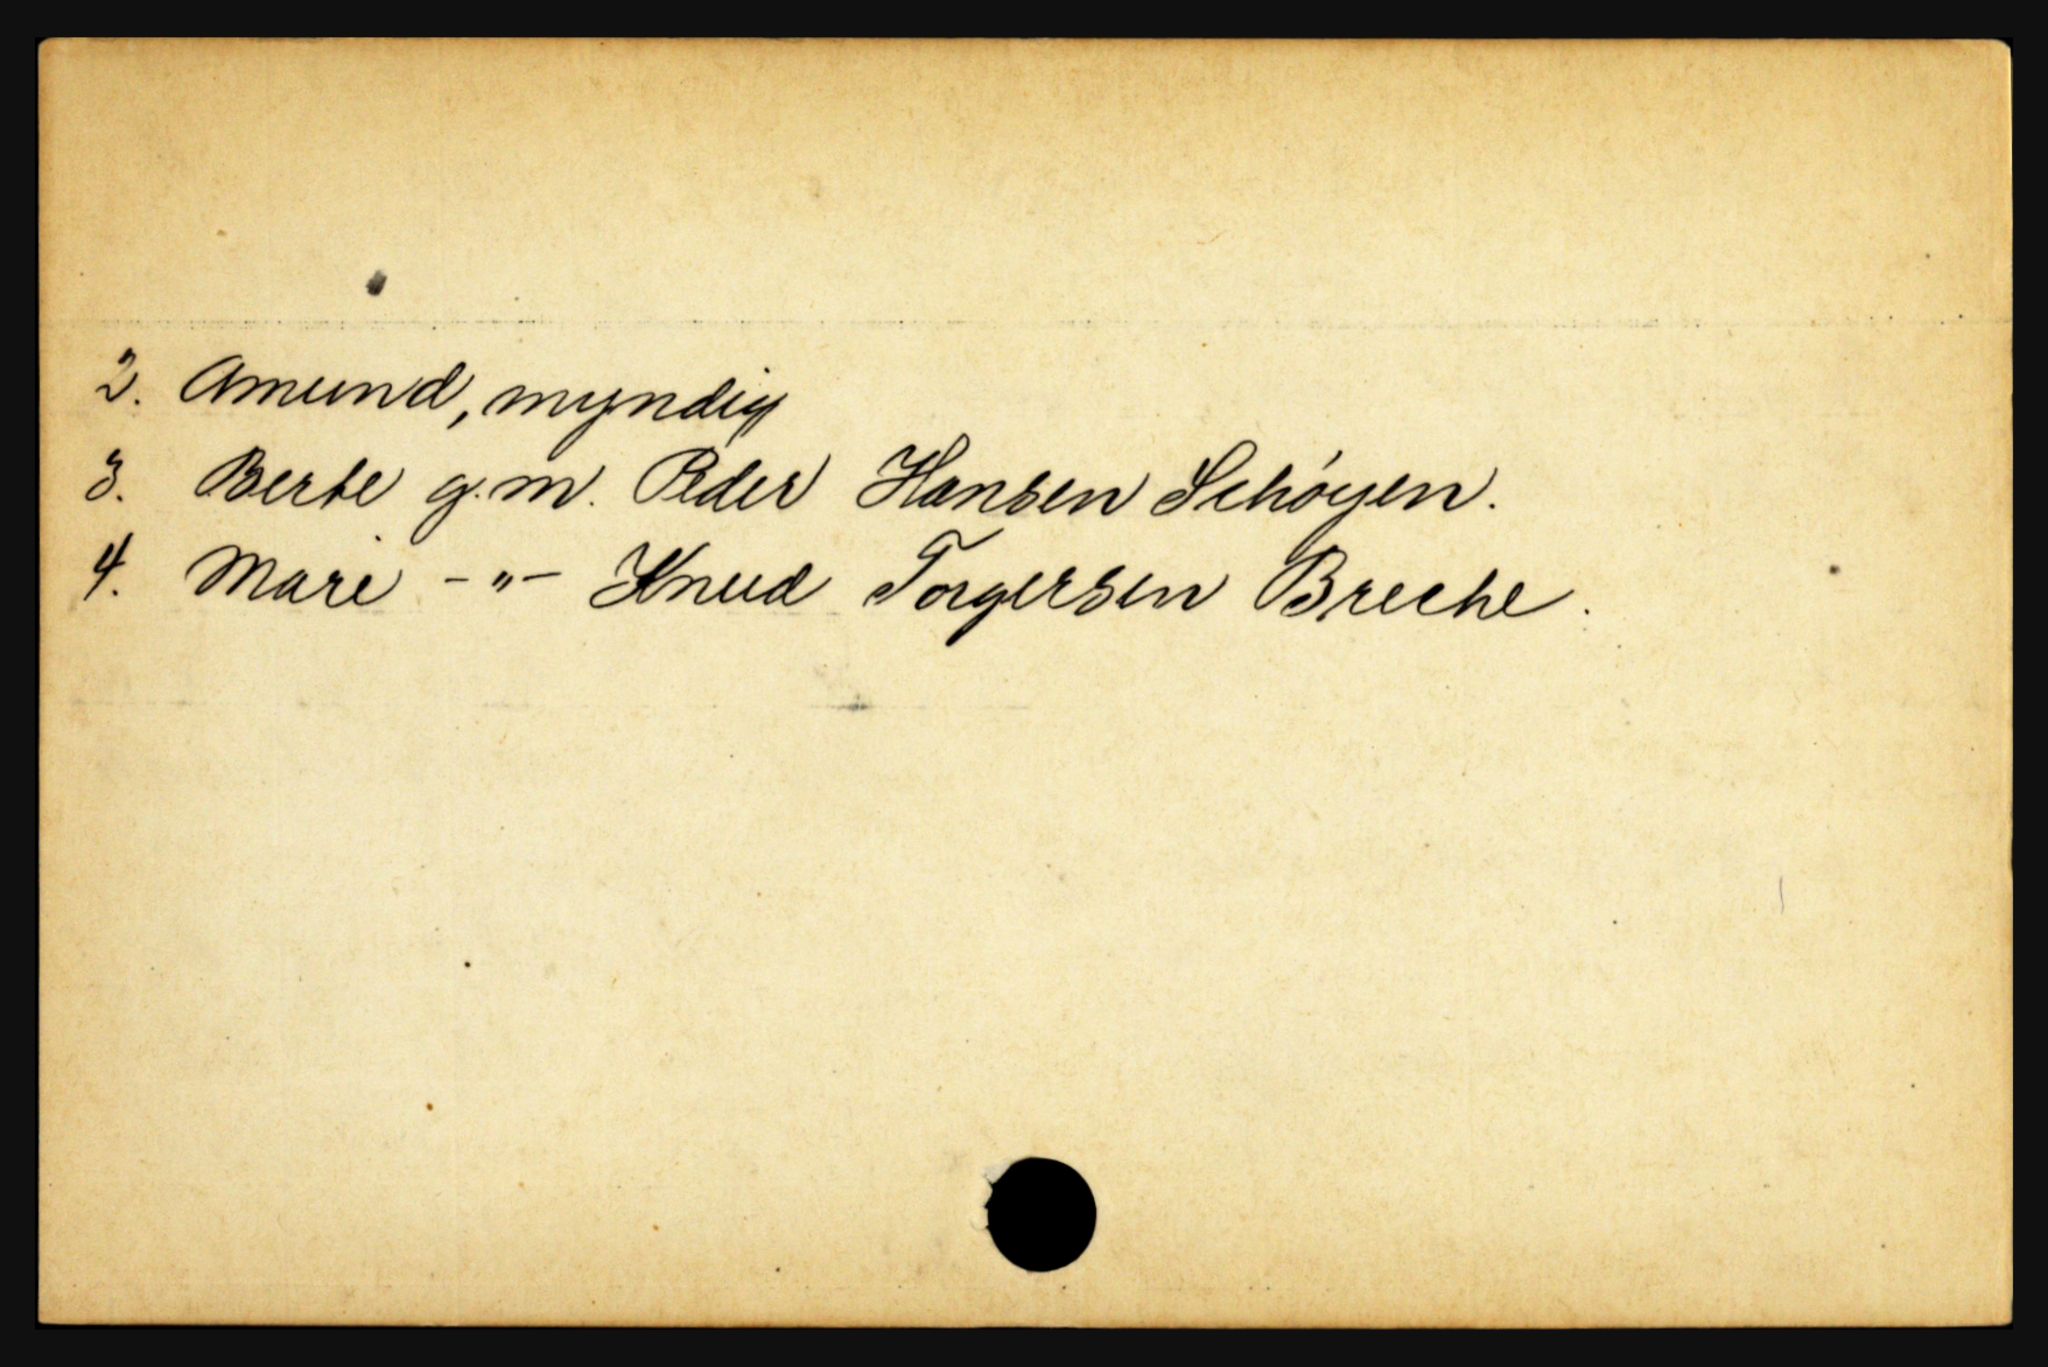 2. Amund, myndig
3. Berte g.m. Peder Hansen Schøyen.
4. Mari -"- Knud Torgersen Breche.